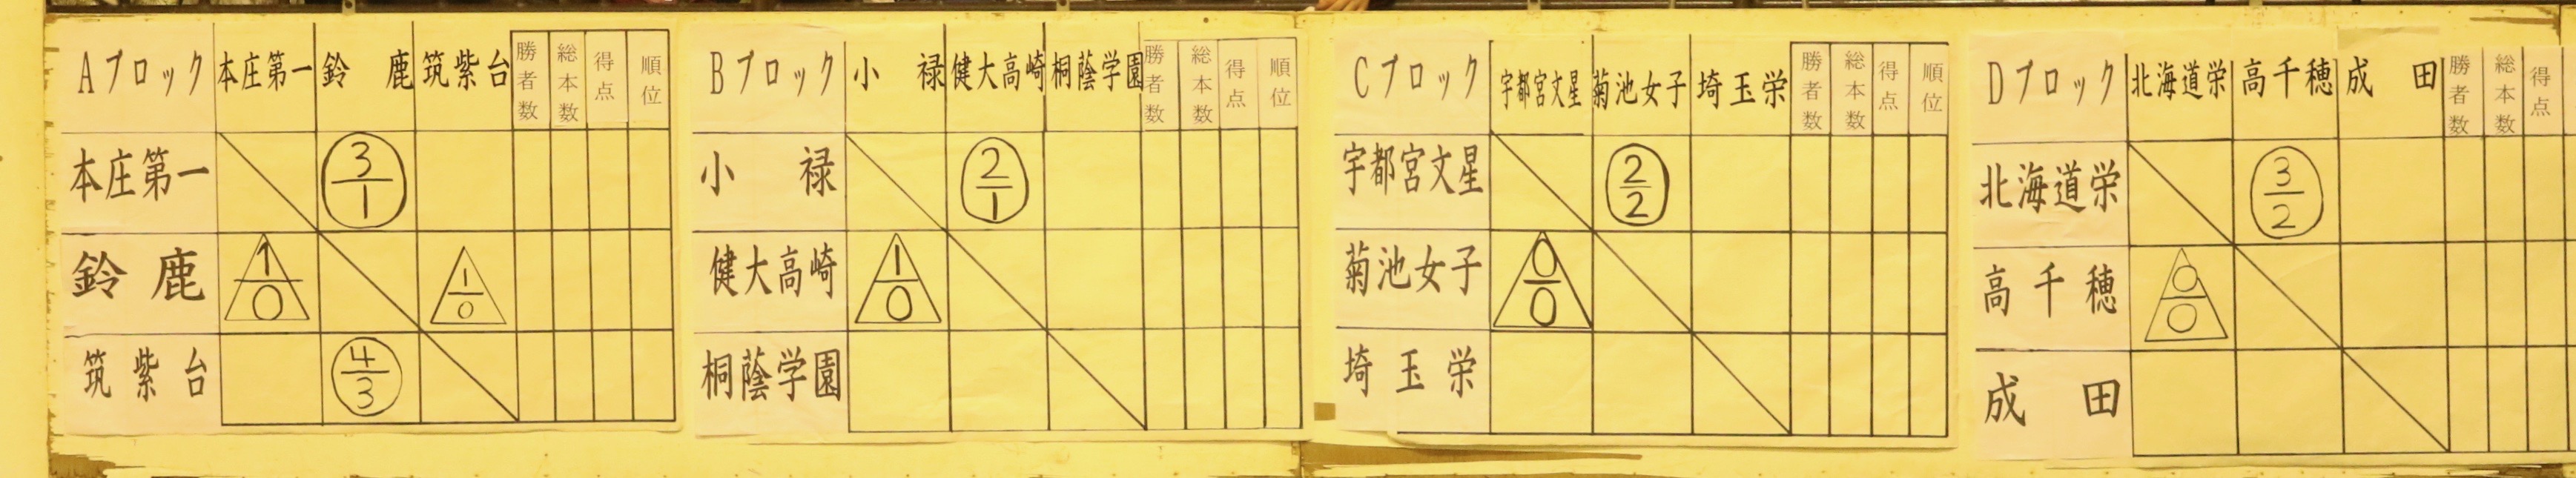 Aブロック 本庄第一 鈴鹿 筑紫台 勝者数 総本数 得点 順位
本庄第一 3/1
鈴鹿 1/0 1/0
筑紫台 4/3
Bブロック 小禄 健大高崎 桐蔭学園 勝者数 総本数 得点 順位
小禄 2/1
健大高崎 1/0
桐蔭学園
Cブロック 宇都宮文星 菊池女子 埼玉栄 勝者数 総本数 得点 順位
宇都宮文星 2/2
菊池女子 0/0
埼玉栄
Dブロック 北海道栄 高千穂 成田 勝者数 総本数 得点
北海道栄 3/2
高千穂 0/0
成田